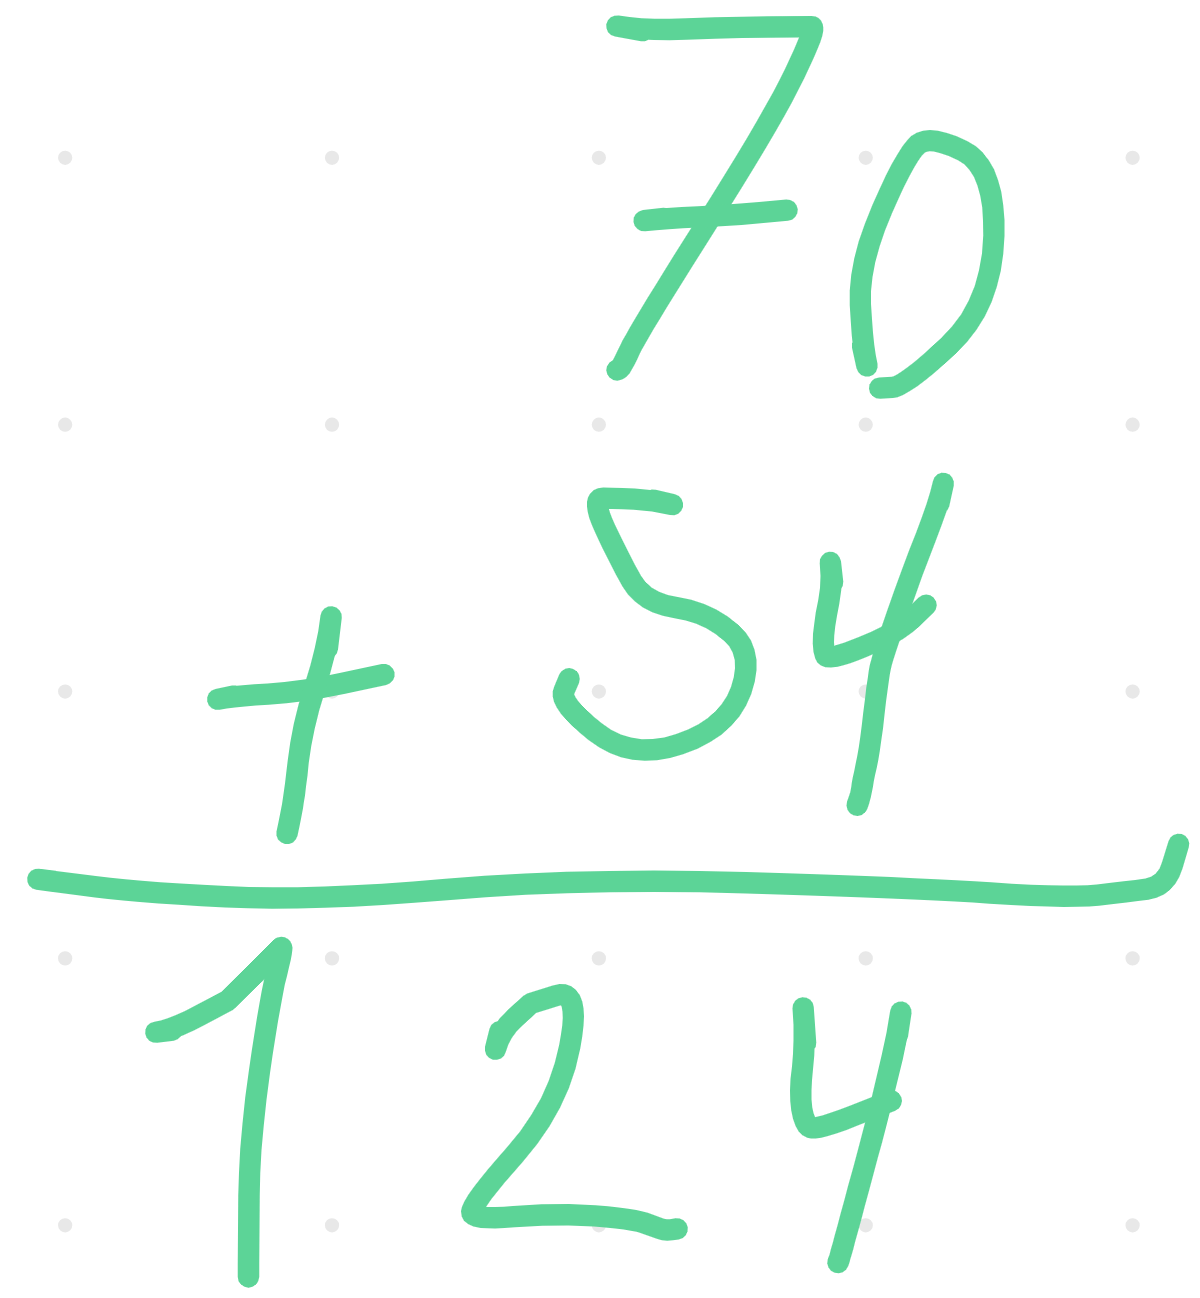 70
+ 54
124